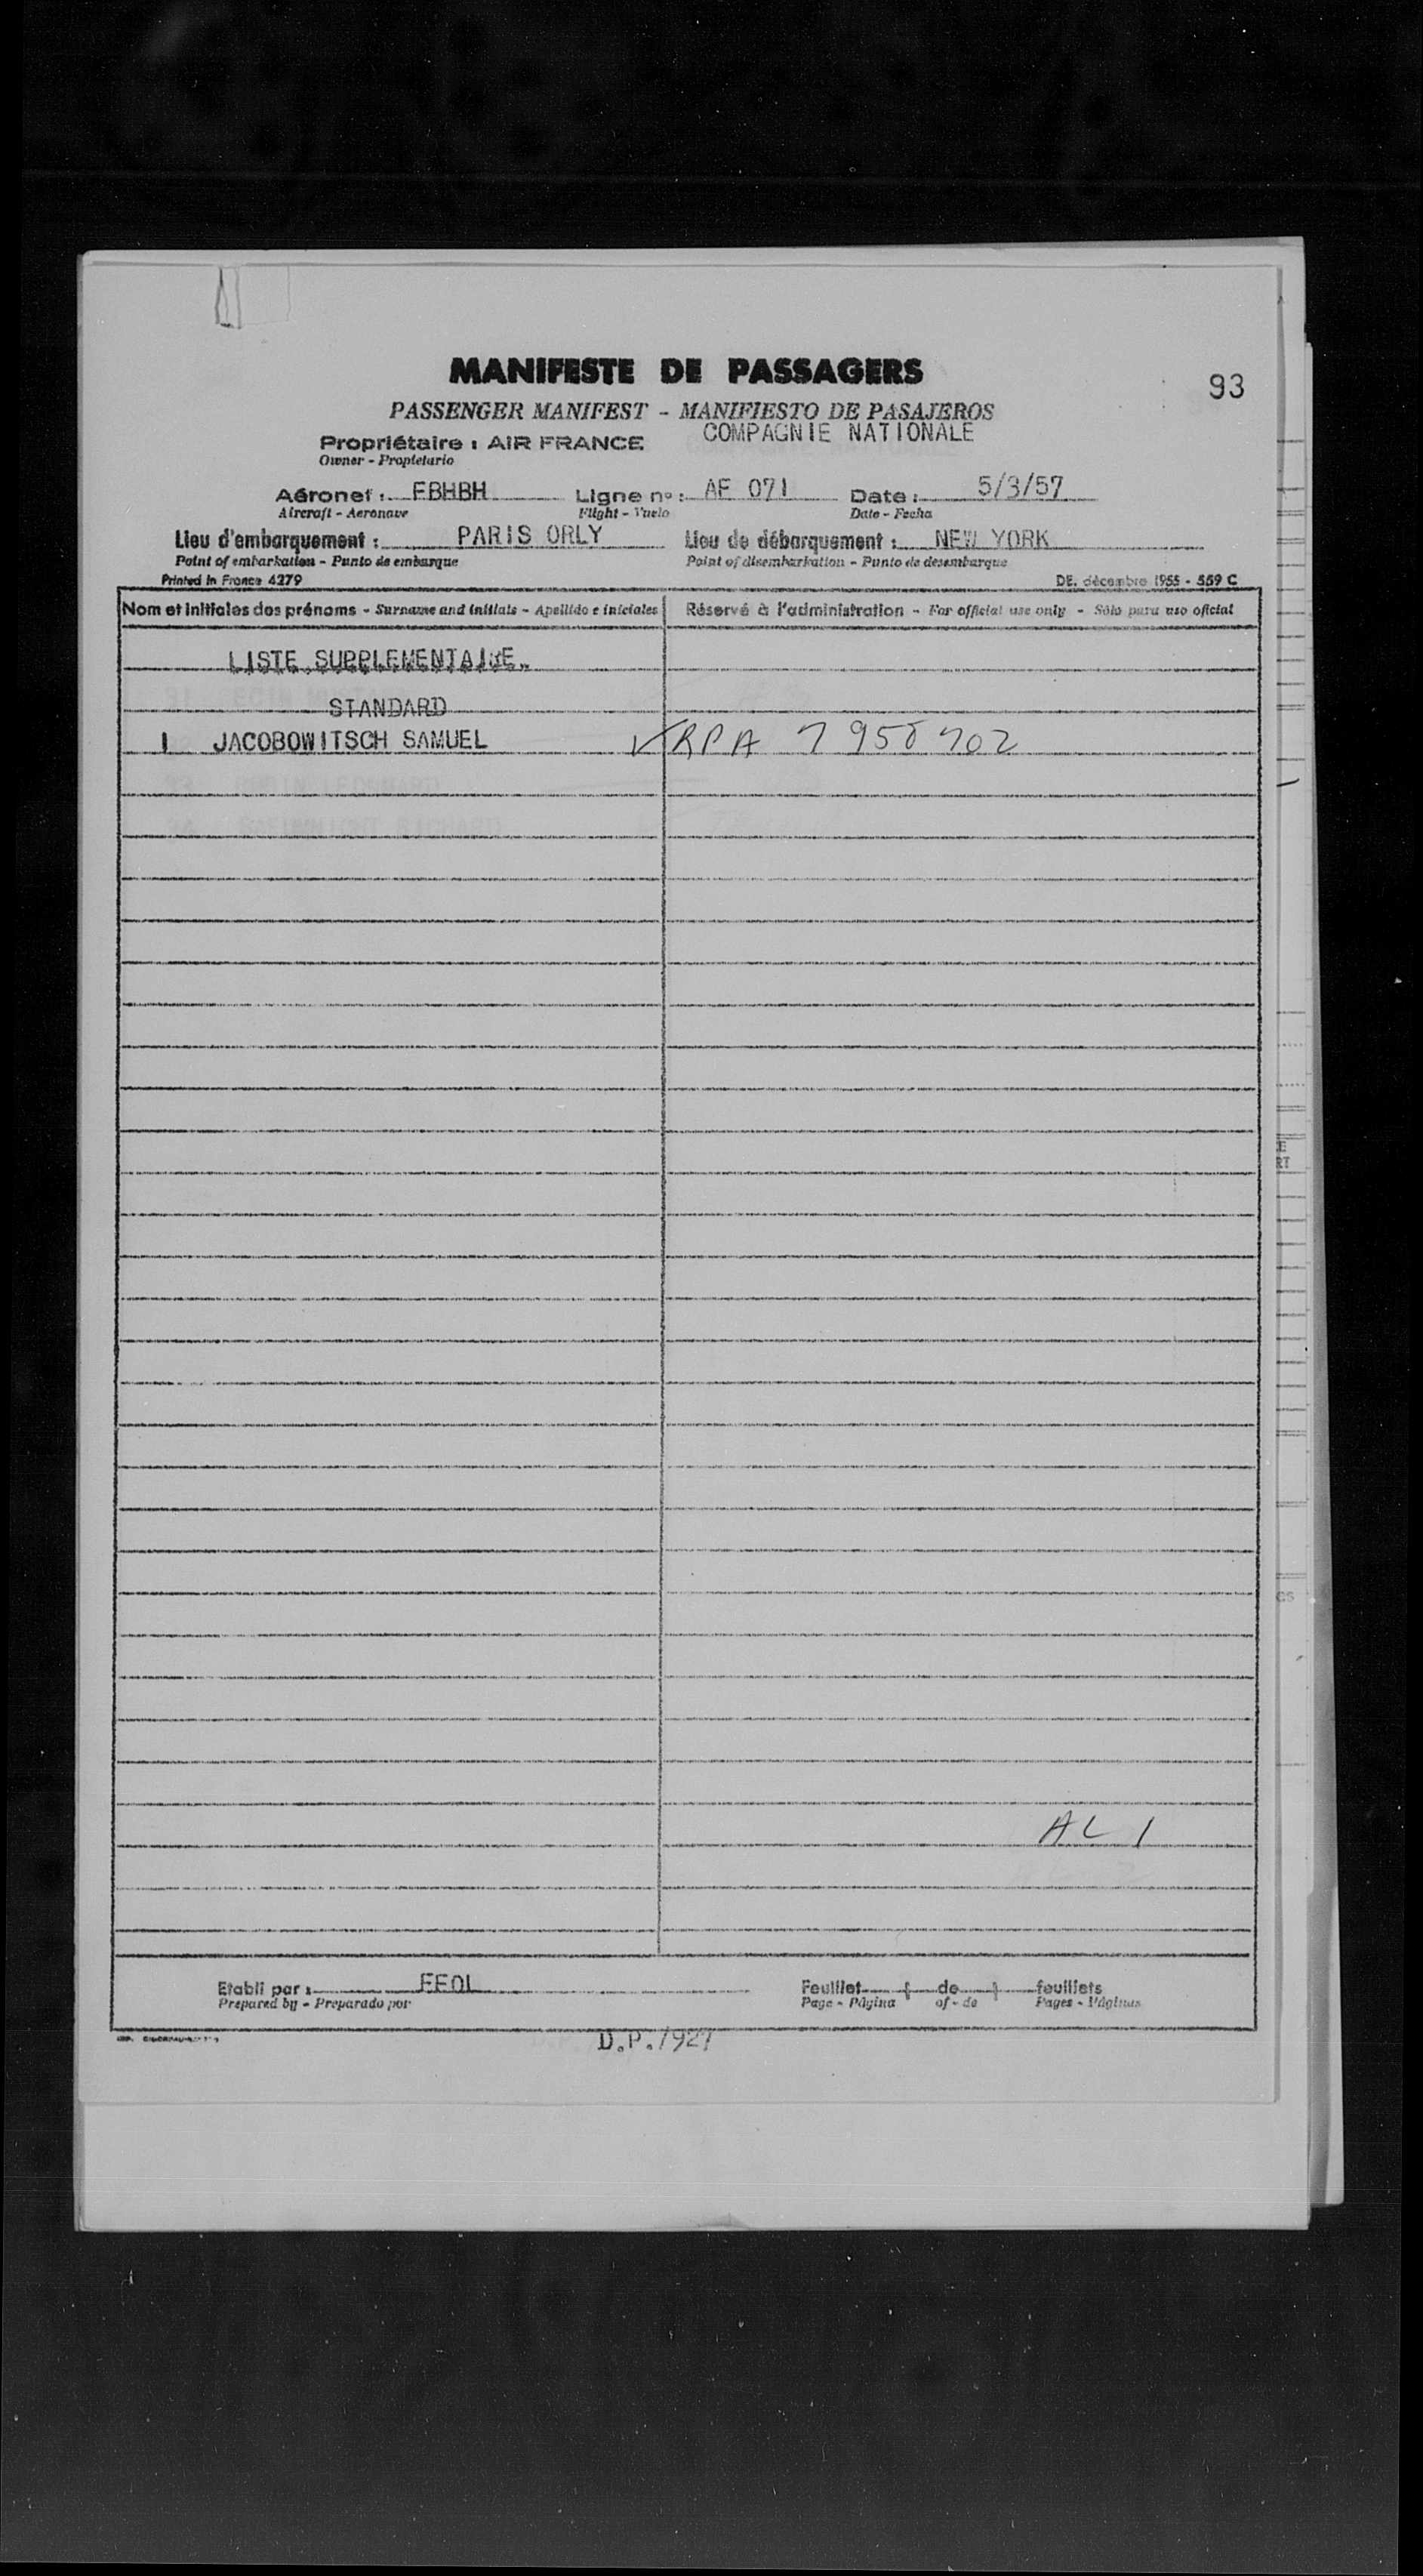 MANIFESTE DE PASSAGERS
93
PASSENGER MANIFEST - MANIFIESTO DE PASAJEROS
COMPAGNIE NATIONALE
Propriétaire : AIR FRANCE
Owner - Propietario
Aéronef : FBHBH Ligne nº : AF 071 Date : 5/3/57
Aircraft - Aeronave Flight - Vuelo Date - Fecha
Lieu d'embarquement : PARIS ORLY Lieu de débarquement : NEW YORK
Point of embarkation - Punto de embarque Point of disembarkation - Punto de desembarque
Printed in France 4279 DE. décembre 1955 - 559 C
Nom et initiales des prénoms - Surname and initials - Apellido e iniciales Réservé à l'administration - For official use only - Sólo para uso oficial
LISTE SUPPLEMENTAIRE.
STANDARD
1 JACOBOWITSCH SAMUEL ✓ RPA
AL 1
Etabli par : Feuillet 1 de 1 feuillets
Prepared by - Preparado por Page - Página of - de Pages - Páginas
D.P./927